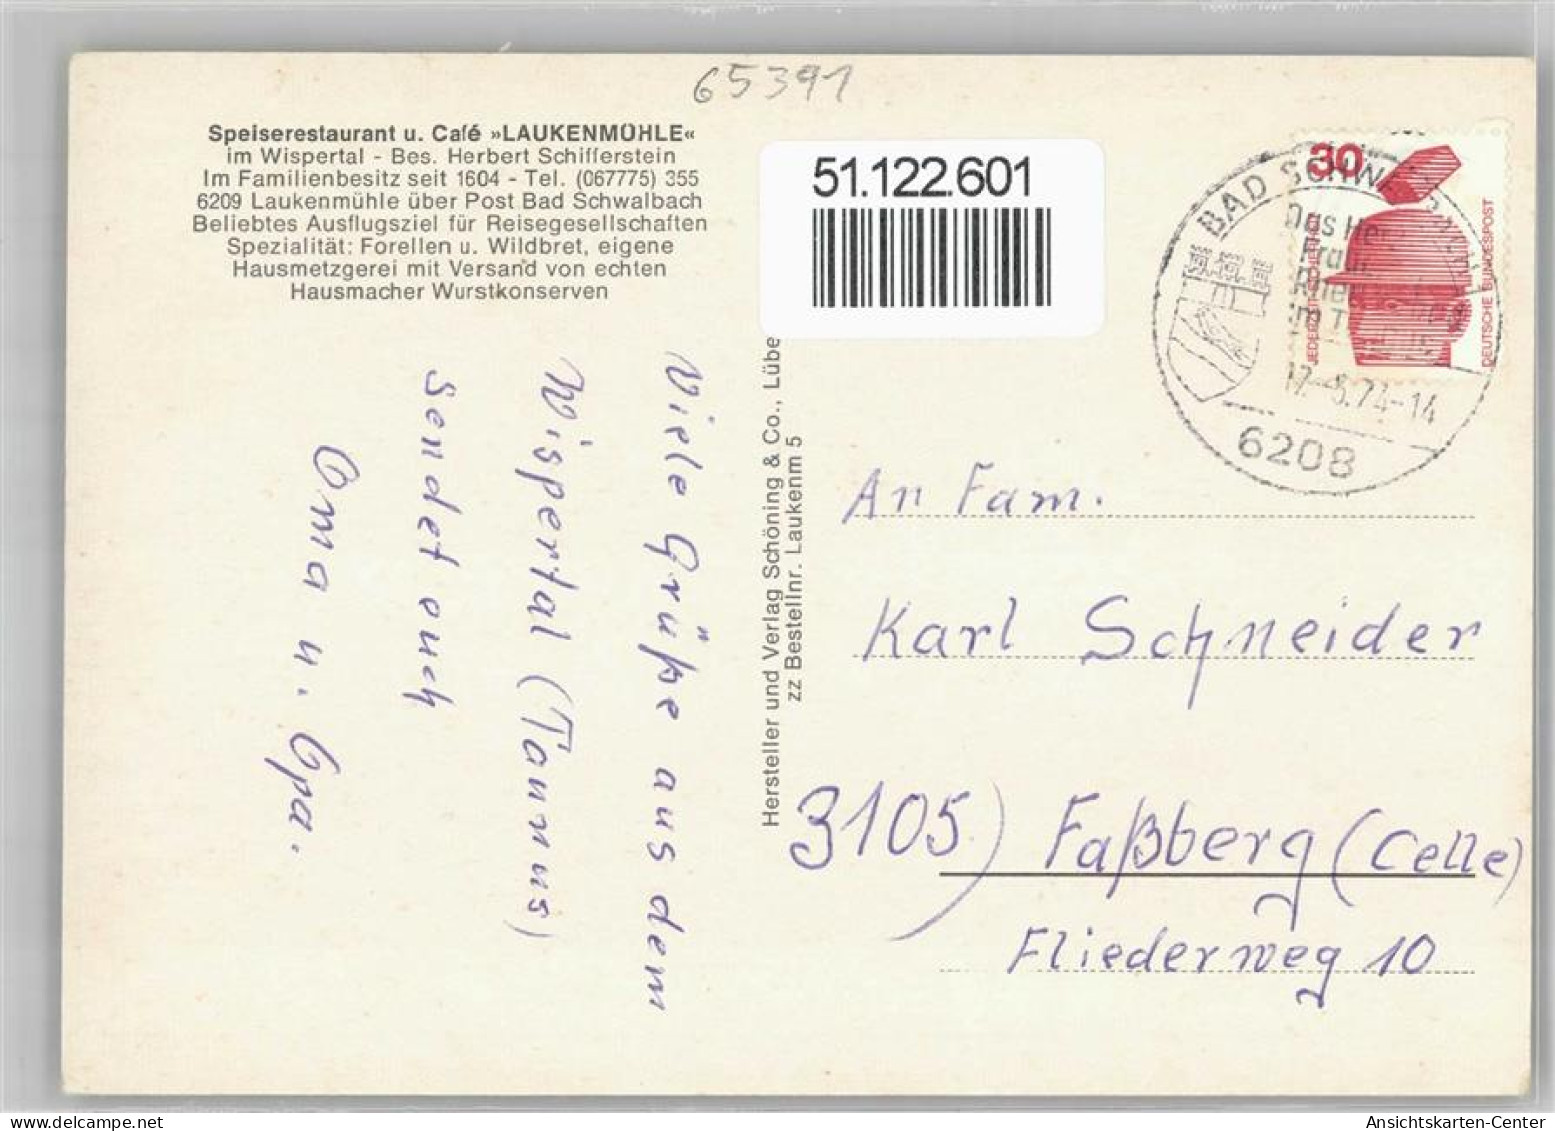 65391
Speiserestaurant u. Café »LAUKENMÜHLE«
im Wispertal - Bes. Herbert Schifferstein
Im Familienbesitz seit 1604 - Tel. (067775) 355
6209 Laukenmühle über Post Bad Schwalbach
Beliebtes Ausflugsziel für Reisegesellschaften
Spezialität: Forellen u. Wildbret, eigene
Hausmetzgerei mit Versand von echten
Hausmacher Wurstkonserven
51.122.601
Viele Grüße aus dem
Wispertal (Taunus)
sendet euch
Oma u. Opa.
Hersteller und Verlag Schöning & Co., Lübe
zz Bestellnr. Laukenm 5
30
JEDERZEIT
DEUTSCHE BUNDESPOST
BAD SCHWALBACH
Das
im
17.-5.74-14
6208
An Fam.
Karl Schneider
3105) Faßberg (Celle)
Fliederweg 10
Ansichtskarten-Center